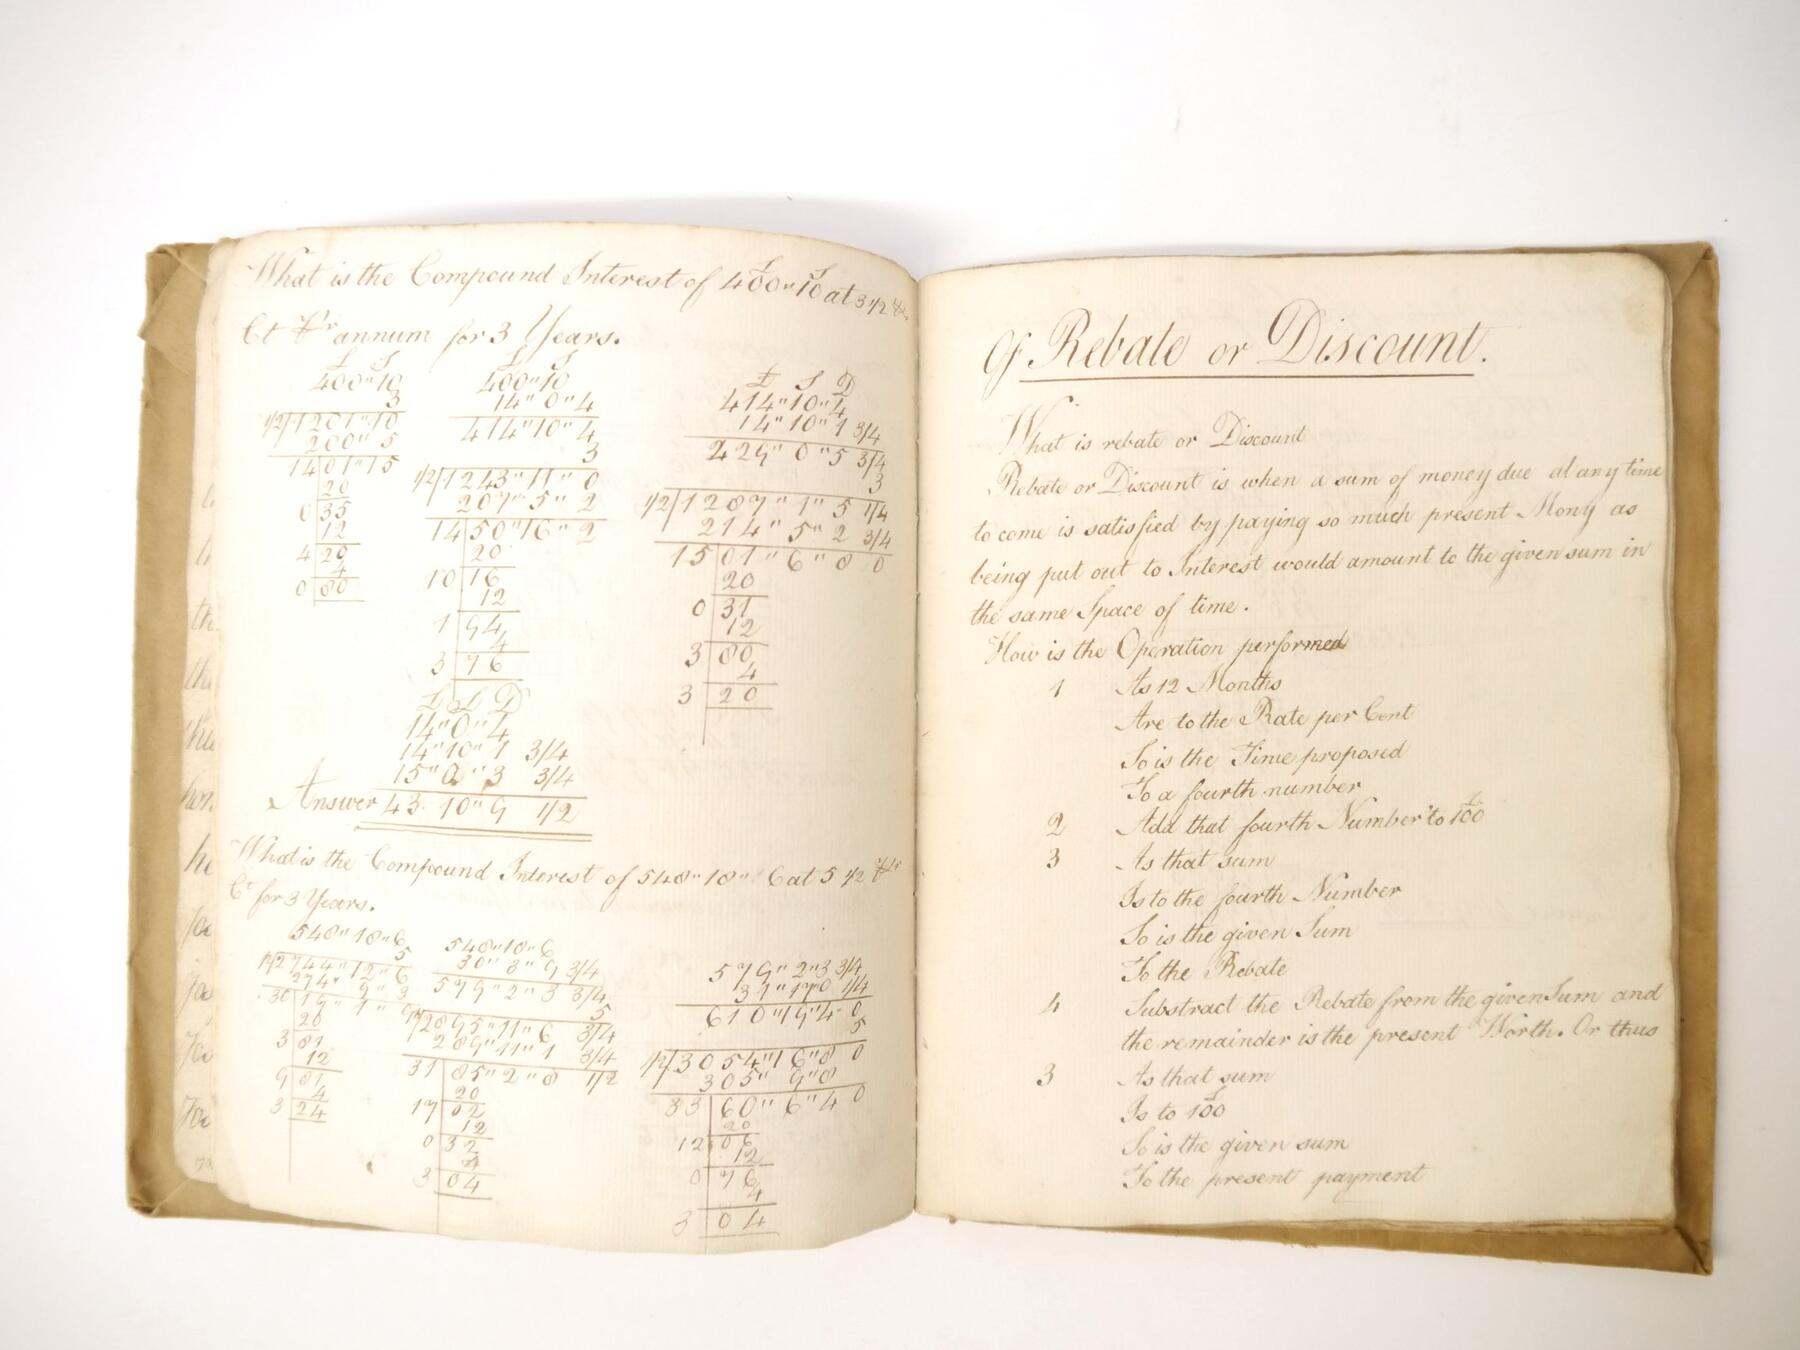 What is the Compound Interest of 400"10 at 3 1/2 Pr
Ct Pr annum for 3 Years.
£ S
400"10
3
1/2|1201"10
200"5
14|01"15
20
0|35
12
4|20
4
0|80
£ S
400"10
14"0"4
414"10"4
3
1/2|1243"11"0
207"5"2
14|50"16"2
20
10|16
12
1|94
4
3|76
£ S D
414"10"4
14"10"1 3/4
429"0"5 3/4
3
1/2|1287"1"5 1/4
214"5"2 3/4
1501"6"8 0
20
0|31
12
3|80
4
3|20
£ S D
14"0"4
14"10"1 3/4
15"0"3 3/4
Answer 43"10"9 1/2
What is the Compound Interest of 548"18"6 at 5 1/2 Pr
Ct for 3 Years.
548"18"6
5
1/2|2744"12"6
274"9"3
30|19"1"9
20
3|81
12
9|81
4
3|24
548"18"6
30"3"9 3/4
579"2"3 3/4
5
1/2|2895"11"6 3/4
289"11"1 3/4
31|85"2"8 1/2
20
17|02
12
0|32
4
3|04
579"2"3 3/4
31"17"0 1/4
610"19"4 0
5
1/2|3054"16"8 0
305"9"8
33|60"6"4 0
20
12|06
12
0|76
4
3|04
Of Rebate or Discount.
What is rebate or Discount
Rebate or Discount is when a sum of money due at any time
to come is satisfied by paying so much present Mony as
being put out to Interest would amount to the given sum in
the same Space of time.
How is the Operation performed
1 As 12 Months
Are to the Rate per Cent
So is the Time proposed
To a fourth number
2 Add that fourth Number to £100
3 As that sum
Is to the fourth Number
So is the given Sum
To the Rebate
4 Substract the Rebate from the given Sum and
the remainder is the present Worth. Or thus
3 As that sum
Is to £100
So is the given sum
To the present payment